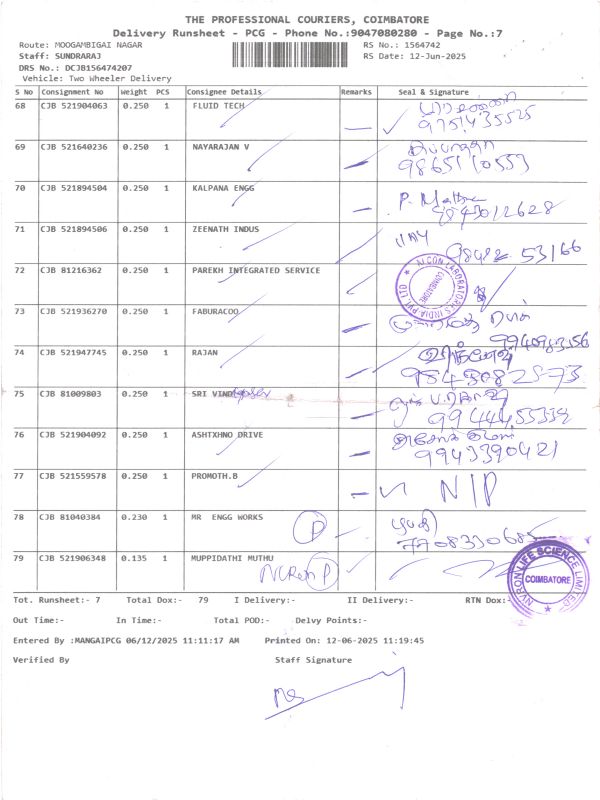 THE PROFESSIONAL COURIERS, COIMBATORE
Delivery Runsheet - PCG - Phone No.:9047080280 - Page No.:7
Route: MOOGAMBIGAI NAGAR RS No.: 1564742
Staff: SUNDRARAJ RS Date: 12-Jun-2025
DRS No.: DCJB156474207
Vehicle: Two Wheeler Delivery
S No Consignment No Weight PCS Consignee Details Remarks Seal & Signature
68 CJB 521904063 0.250 1 FLUID TECH
9751435525
69 CJB 521640236 0.250 1 NAYARAJAN V
9865110553
70 CJB 521894504 0.250 1 KALPANA ENGG P.
9843012628
71 CJB 521894506 0.250 1 ZEENATH INDUS
98422 53166
72 CJB 81216362 0.250 1 PAREKH INTEGRATED SERVICE
COIMBATORE
73 CJB 521936270 0.250 1 FABURACOO
9940983156
74 CJB 521947745 0.250 1 RAJAN
75 CJB 81009803 0.250 1 SRI
76 CJB 521904092 0.250 1 ASHTXHNO DRIVE
9943390421
77 CJB 521559578 0.250 1 PROMOTH.B
N/P
78 CJB 81040384 0.230 1 MR ENGG WORKS P
7708330685
79 CJB 521906348 0.135 1 MUPPIDATHI MUTHU
P
NYRON LIFE SCIENCE LIMITED
COIMBATORE
Tot. Runsheet:- 7 Total Dox:- 79 I Delivery:- II Delivery:- RTN Dox:-
Out Time:- In Time:- Total POD:- Delvy Points:-
Entered By :MANGAIPCG 06/12/2025 11:11:17 AM Printed On: 12-06-2025 11:19:45
Verified By Staff Signature